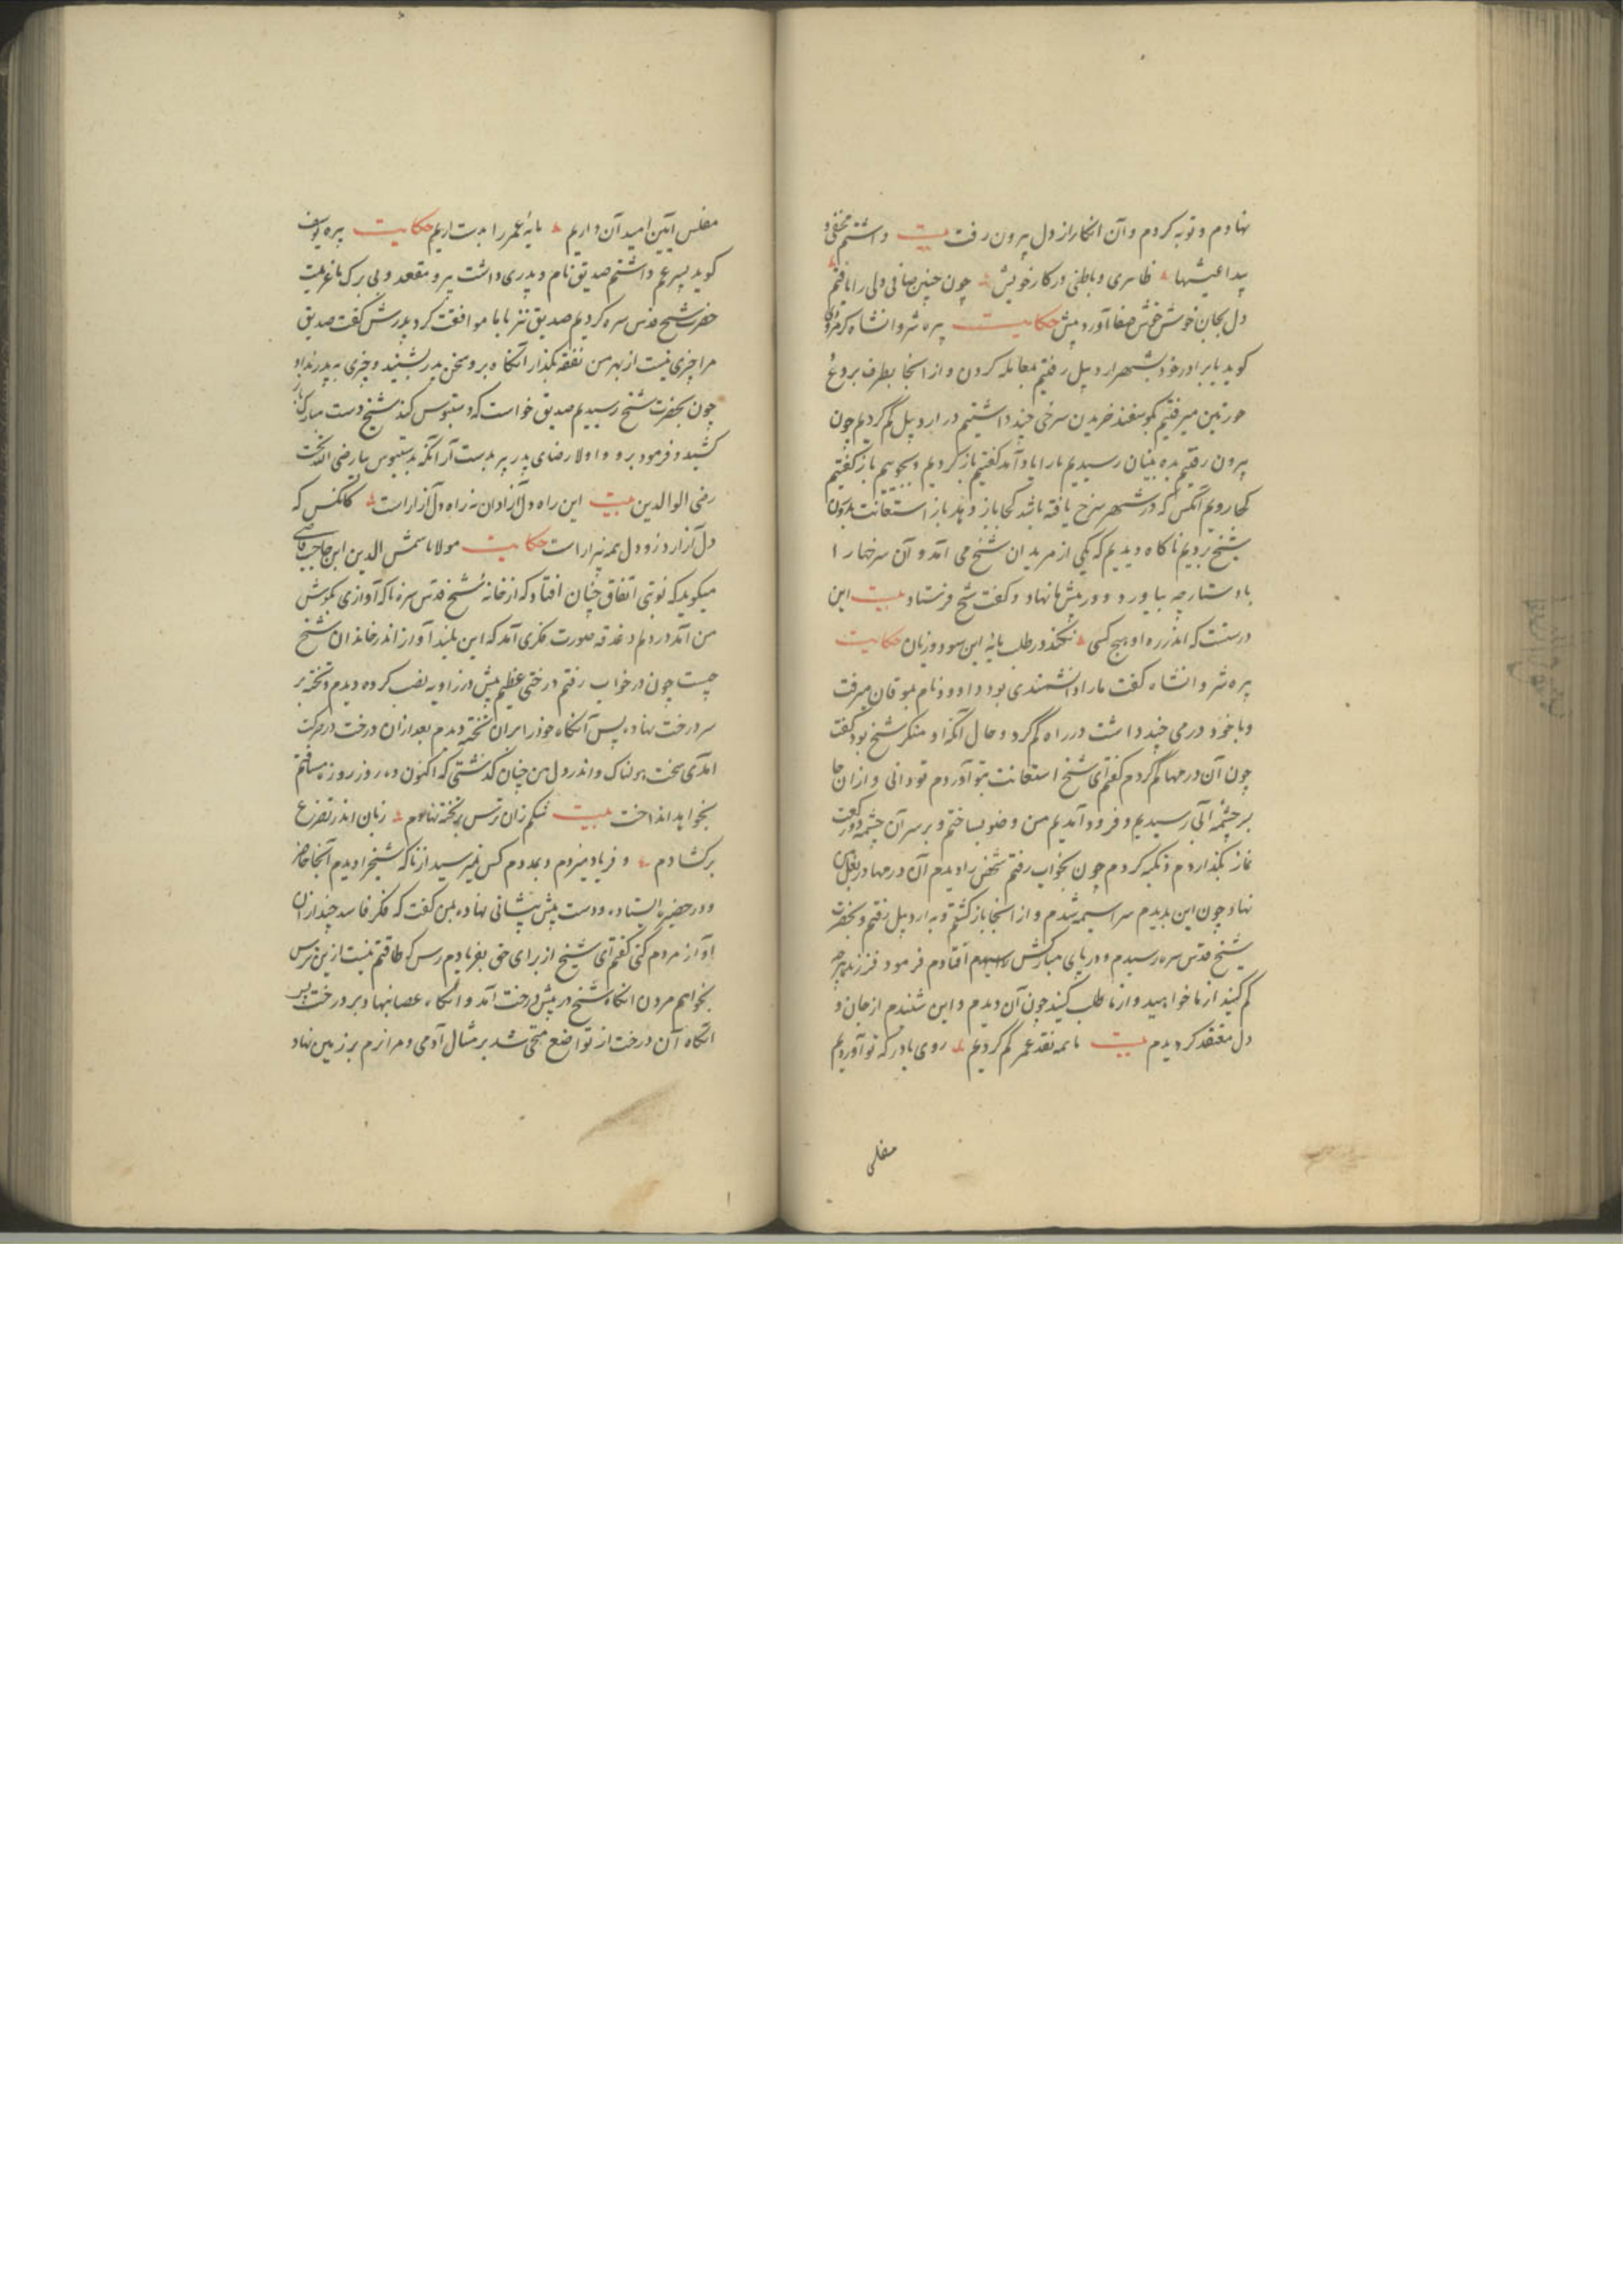 نهادم و توبه کردم و آن انکار از دل بیرون رفت بیت داشتم مخفی و
پیدا عیشها ظاهری و باطنی در کار خویش چون چنین صافی دلی را یافتم
دل بجان خوش خوش صفا آورد پیش حکایت پیره شروانشاه کرمرودی
کوید با برادر خود بشهر اردبیل رفتیم معامله کردن و از انجا بطرف بروغ
میرفتیم کوسفند خریدن سرخی چند داشتیم در اردبیل کم کردیم چون
بیرون رفتیم بده بنیان رسیدیم ما را یاد آمد کفتیم باز کردیم و بجوییم باز کفتیم
کجا رویم آنکس که در شهر سرخ یافته باشد کجا باز دهد باز استعانت بدرون
شیخ بردیم ناکاه دیدیم که یکی از مریدان شیخ می آمد و آن سرخها را
با دستارچه بیاورد و در پیش ما نهاد و کفت شیخ فرستاد بیت این
درستست که اندر ره او هیچ کسی نکند در طلب مایه این سود و زیان حکایت
پیره شروانشاه کفت ما را دانشمندی بود داوود نام بموقان میرفت
و با خود درمی چند داشت در راه کم کرد و حال آنکه او منکر شیخ بود کفت
چون آن درمها کم کردم کفتم ای شیخ استعانت بتو آوردم تو دانی و از آن جا
بر چشمه آبی رسیدیم و فرود آمدیم من وضو بساختم و بر سر آن چشمه دو رکعت
نماز بکذاردم و تکیه کردم چون بخواب رفتم شخصی را دیدم آن درمها در بغل من
نهاد چون این بدیدم سراسیمه شدم و از انجا باز کشتم و به اردبیل رفتم و بحضرت
شیخ قدس سره رسیدم و در پای مبارکش افتادم فرمود فرزند هرچه
کم کنید از ما خواهید و از ما طلب کنید چون آن دیدم و این شنیدم از جان و
دل معتقد کردیدم بیت ما همه نقد عمر کم کردیم روی با درکه تو آوردیم
مفلس
مفلس آیین امید آن داریم مایه عمر را بدست اریم حکایت پیره یوسف
کوید پسر عم داشتم صدیق نام و پدری داشت پیر و مقعد و بی برک ما عزیمت
حضرت شیخ قدس سره کردیم صدیق نیز با ما موافقت کرد پدرش کفت صدیق
مرا چیزی نیست از بهر من نفقه بکذار آنکاه برو سخن پدر نشنید و چیزی به پدر نداد
چون بحضرت شیخ رسیدیم صدیق خواست که دستبوس کند شیخ دست مبارک باز
کشید و فرمود برو و اولا رضای پدر پیر بدست آر آنکه بدستبوس بیا رضی الله تحت
رضی الوالدین بیت این راه دل آزادان نه راه دل آزار است کانکس که
دل آزارد زو دل همه بیزار است حکایت مولانا شمس الدین ابن حاجب قاضی
میکوید که نوبتی اتفاق چنان افتاد که از خانه شیخ قدس سره ناکه آوازی بکوش
من آمد در دلم دغدغه صورت فکری آمد که این بلند آواز اندر خاندان شیخ
چیست چون در خواب رفتم درختی عظیم پیش در زاویه نصب کرده دیدم و تخته بر
سر درخت نهاده پس آنکاه خود را بر ان تخته دیدم بعد از ان درخت در حرکت
آمدی سخت هولناک و اندر دل من چنان کذشتی که اکنون ده روز روزه مسافتم
بخواهد انداخت بیت شکم زان ترس بر تخته نهادم زبان اندر تضرع
بر کشادم و فریاد میزدم و بمددم کس نمیرسید از ناکه شیخ را دیدم آنجا حاضر
و در حضیره ایستاده و دست پیش پیشانی نهاده بمن کفت که فکر فاسد چند از ان
آواز مردم کنی کفتم ای شیخ از برای حق بفریادم رس که طاقتم نیست از ین ترس
بخواهم مردن انکاه شیخ در پیش درخت آمد و انکاه عصا بنهاد بر درخت پس
انکاه آن درخت از تواضع منحنی شد بر مثال آدمی و مرا نرم بر زمین نهاد